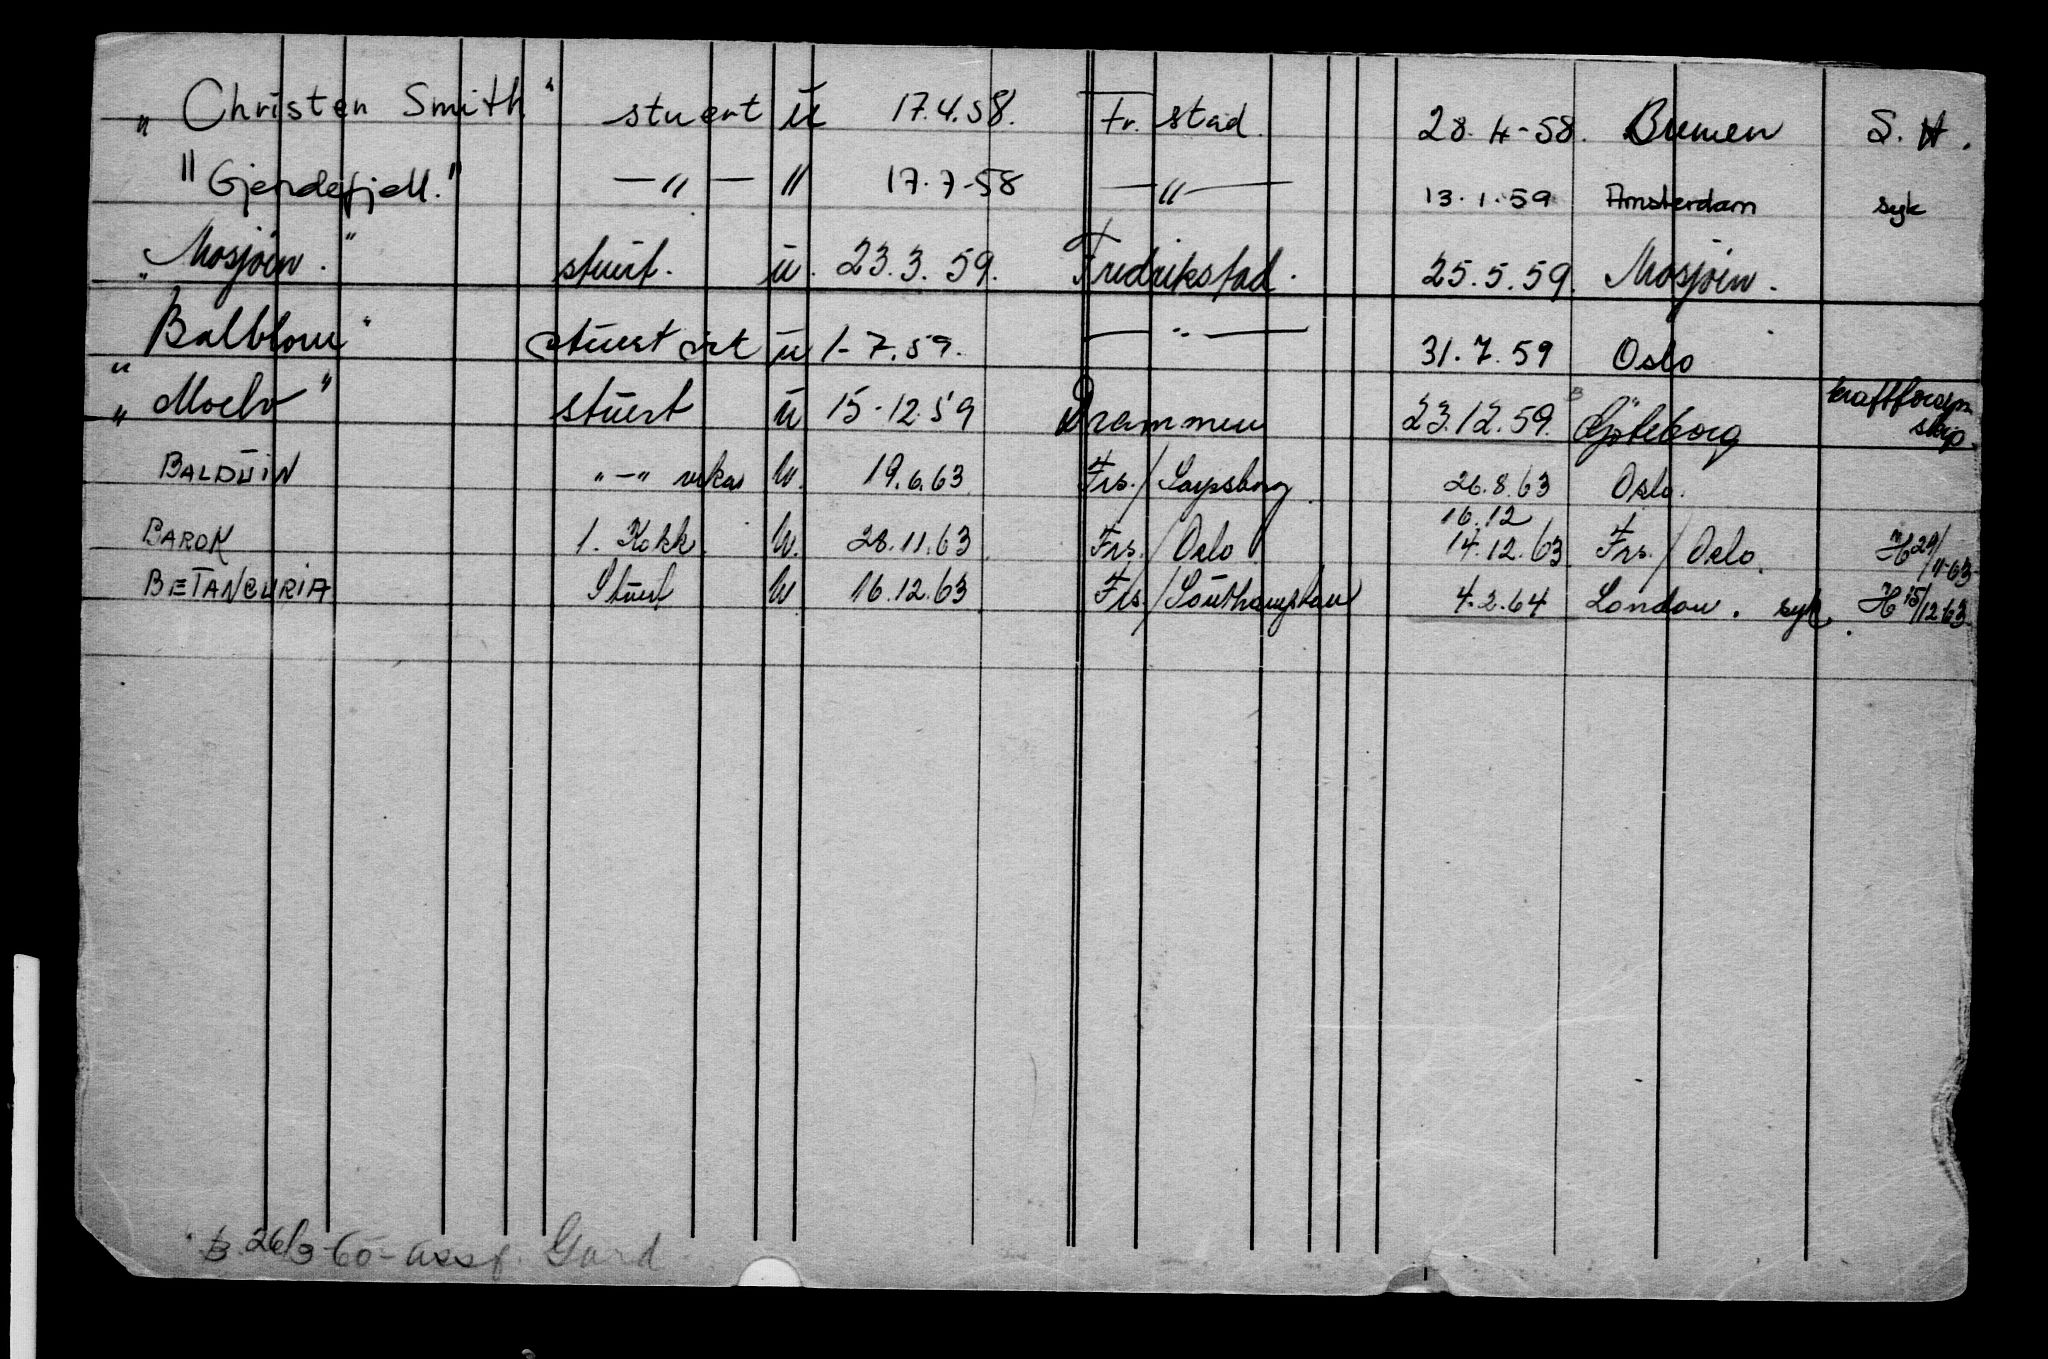 „Christen Smith" stuert u 17.4.58. Fr. stad. 28.4-58. Bremen S. H.
"Gjendefjell." —"— " 17.7-58 —"— 13.1.59 Amsterdam syk
„Mosjöen." stuert. u. 23.3.59. Fredrikstad. 25.5.59. Mosjöen.
„Balblom" stuert u 1-7.59. —"— 31.7.59 Oslo
„Moelv" stuert u 15-12.59 Drammen 23.12.59. Göteborg
BALDUIN "—" vikar u. 19.6.63 Frs./Sarpsborg. 26.8.63 Oslo.
16.12
BAROK 1. Kokk u. 28.11.63. Frs./Oslo 14.12.63. Frs./Oslo. H 29/11-63
BETANCURIA Stuert u. 16.12.63 Frs/Southampton 4.2.64 London. syk. H 15/12 63
B. 26/3-60- Gard